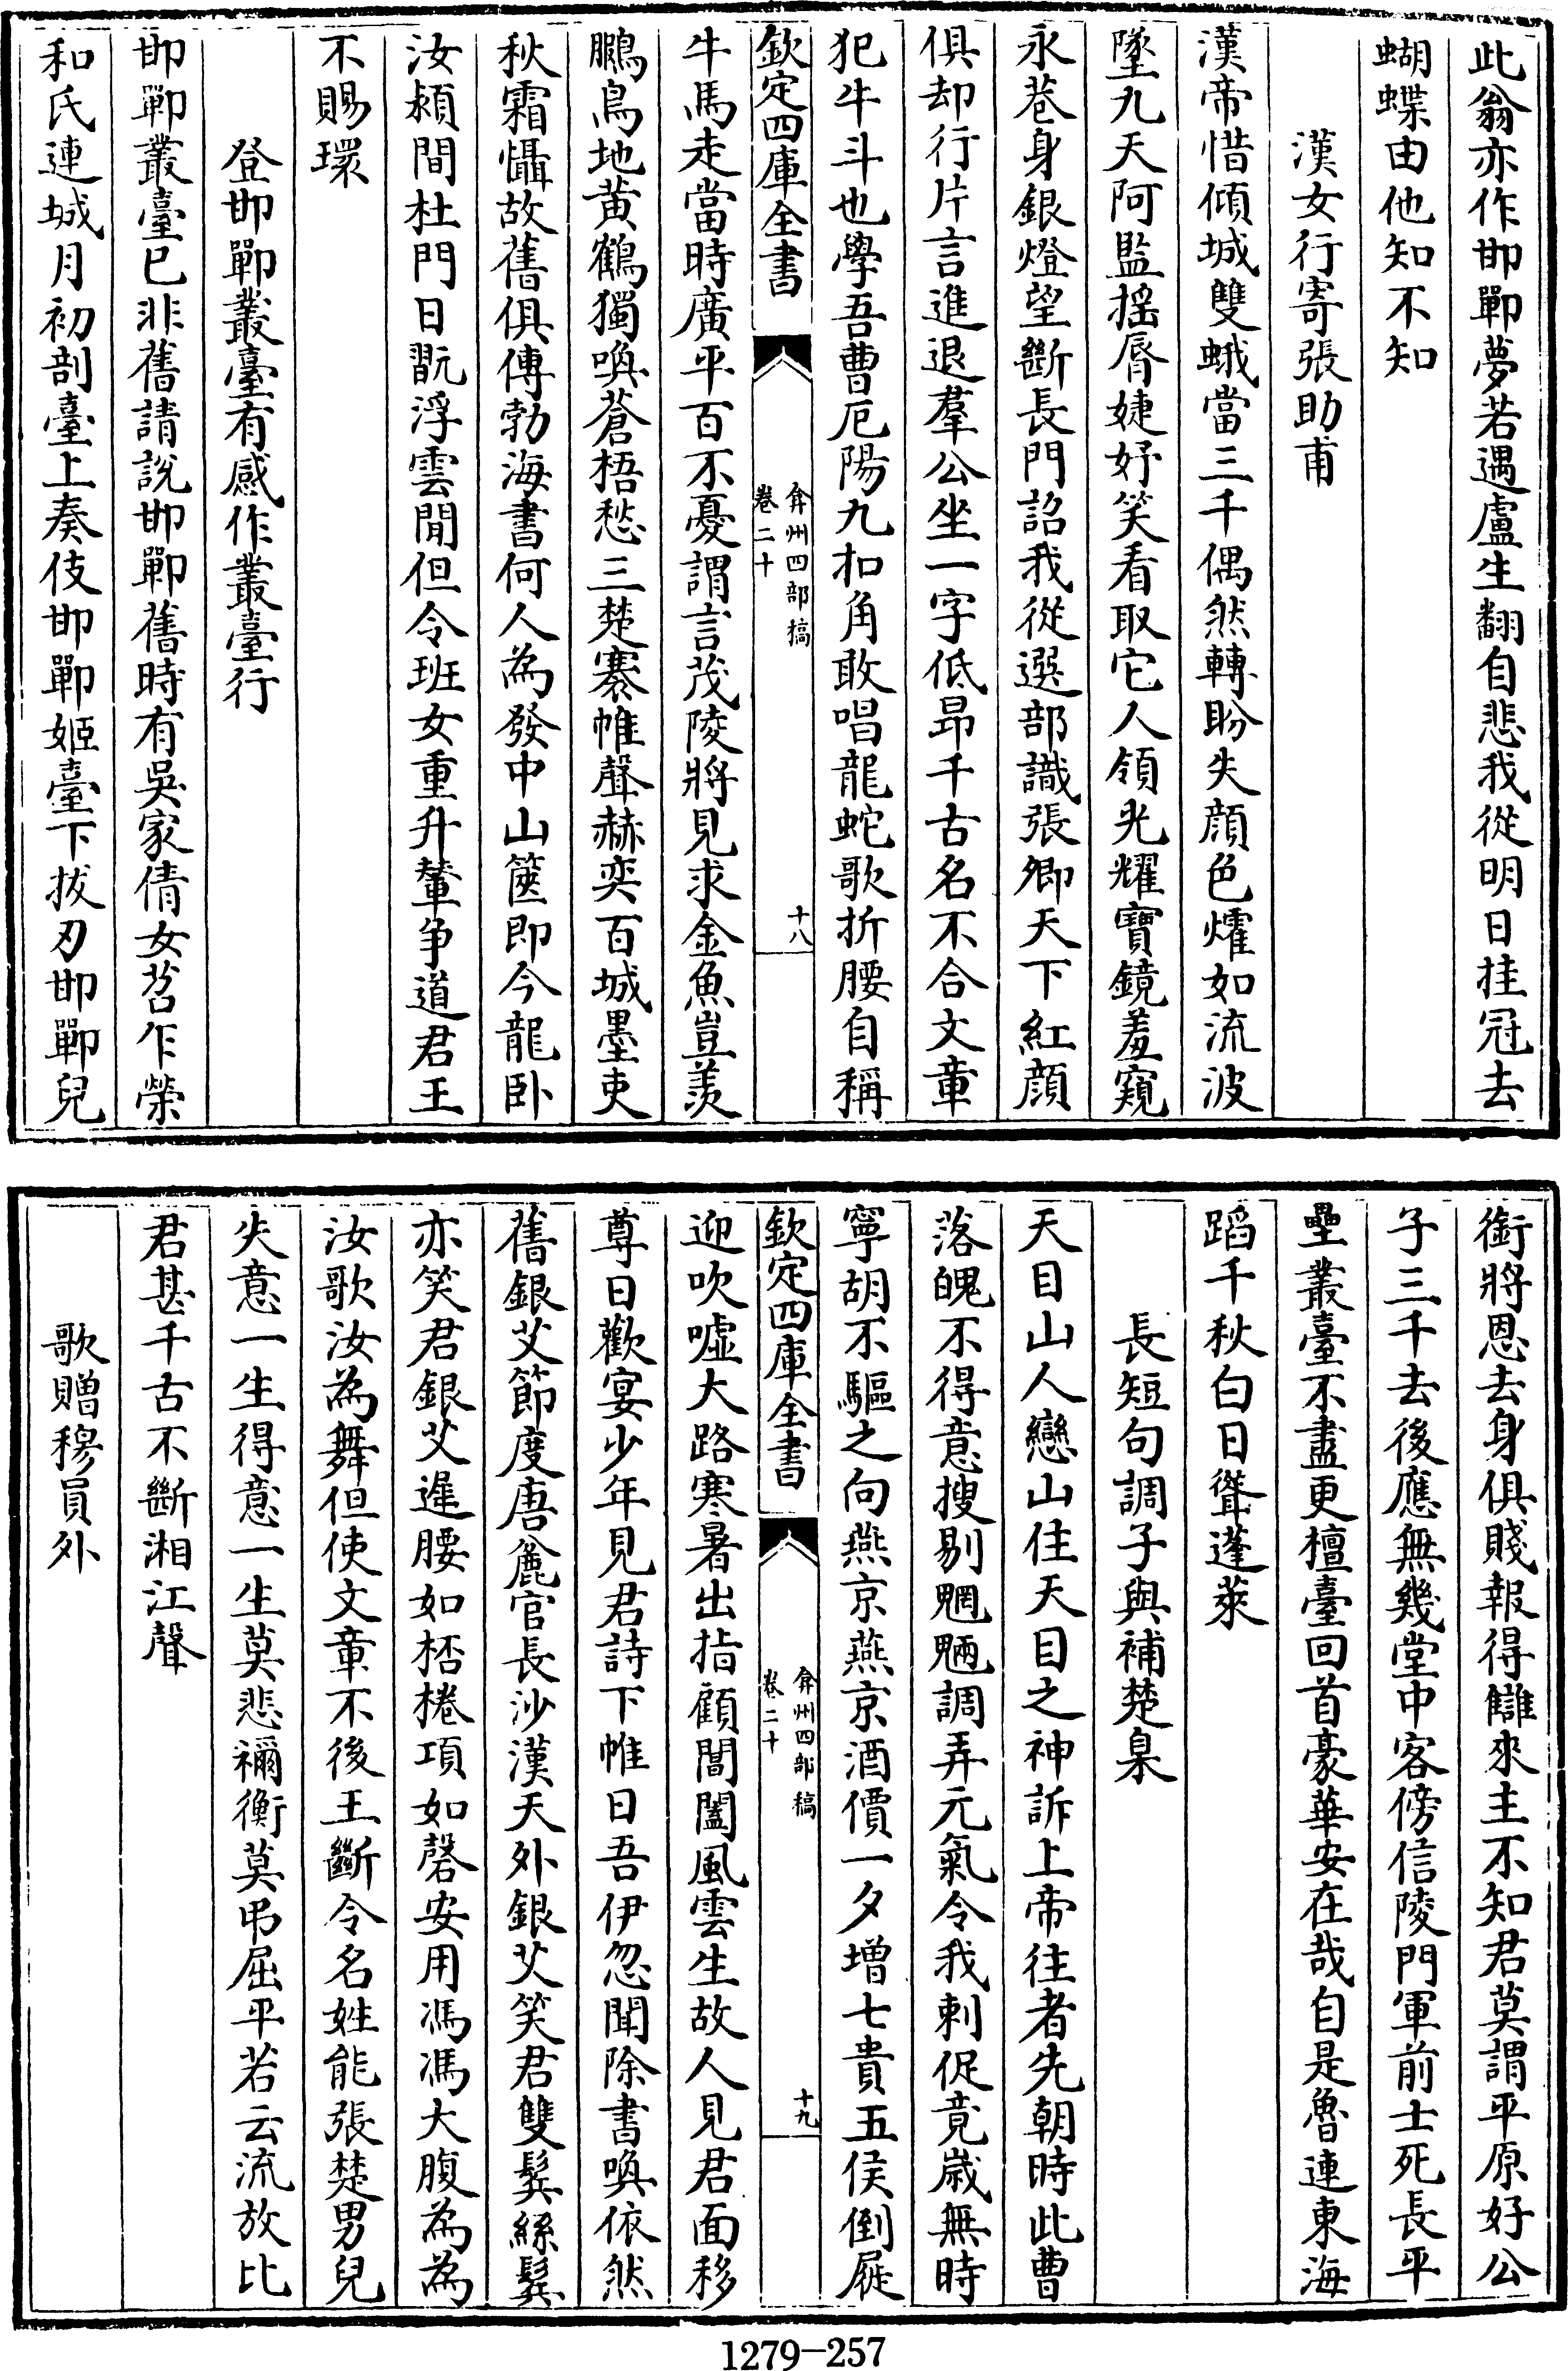 此翁亦作邯鄲夢若遇盧生翻自悲我從明日挂冠去
蝴蝶由他知不知
漢女行寄張助甫
漢帝惜傾城雙蛾當三千偶然轉盼失顔色㸌如流波
墜九天阿監揺脣婕妤笑看取它人領光耀寶鏡羞窺
永巷身銀燈望斷長門詔我從選部識張卿天下紅顔
俱却行片言進退羣公坐一字低昂千古名不合文章
犯牛斗也學吾曹厄陽九扣角敢唱龍蛇歌折腰自稱
欽定四庫全書
弇州四部稿
卷二十
十八
牛馬走當時廣平百不憂謂言茂陵將見求金魚豈羨
鵩鳥地黄鶴獨喚蒼梧愁三楚褰帷聲赫奕百城墨吏
秋霜懾故舊俱傳勃海書何人為發中山篋即今龍卧
汝潁間杜門日翫浮雲閒但令班女重升輦争道君王
不賜環
登邯鄲叢臺有感作叢臺行
邯鄲叢臺已非舊請說邯鄲舊時有吳家倩女苕乍榮
和氏連城月初剖臺上奏伎邯鄲姬臺下拔刃邯鄲兒
銜將恩去身俱賤報得讎來主不知君莫謂平原好公
子三千去後應無幾堂中客傍信陵門軍前士死長平
壘叢臺不盡更檀臺回首豪華安在哉自是魯連東海
蹈千秋白日聳蓬萊
長短句調子與補楚臬
天目山人戀山住天目之神訴上帝往者先朝時此曹
落魄不得意搜剔魍魎調弄元氣令我刺促竟嵗無時
寧胡不驅之向燕京燕京酒價一夕增七貴五侯倒屣
欽定四庫全書
弇州四部稿
卷二十
十九
迎吹噓大路寒暑出指顧閶闔風雲生故人見君面移
尊日歡宴少年見君詩下帷日吾伊忽聞除書喚依然
舊銀艾節度唐麄官長沙漢天外銀艾笑君雙鬂絲鬂
亦笑君銀艾遲腰如桮棬項如磬安用馮馮大腹為為
汝歌汝為舞但使文章不後王斷令名姓能張楚男兒
失意一生得意一生莫悲禰衡莫弔屈平若云流放比
君甚千古不斷湘江聲
歌贈穆員外
1279-257